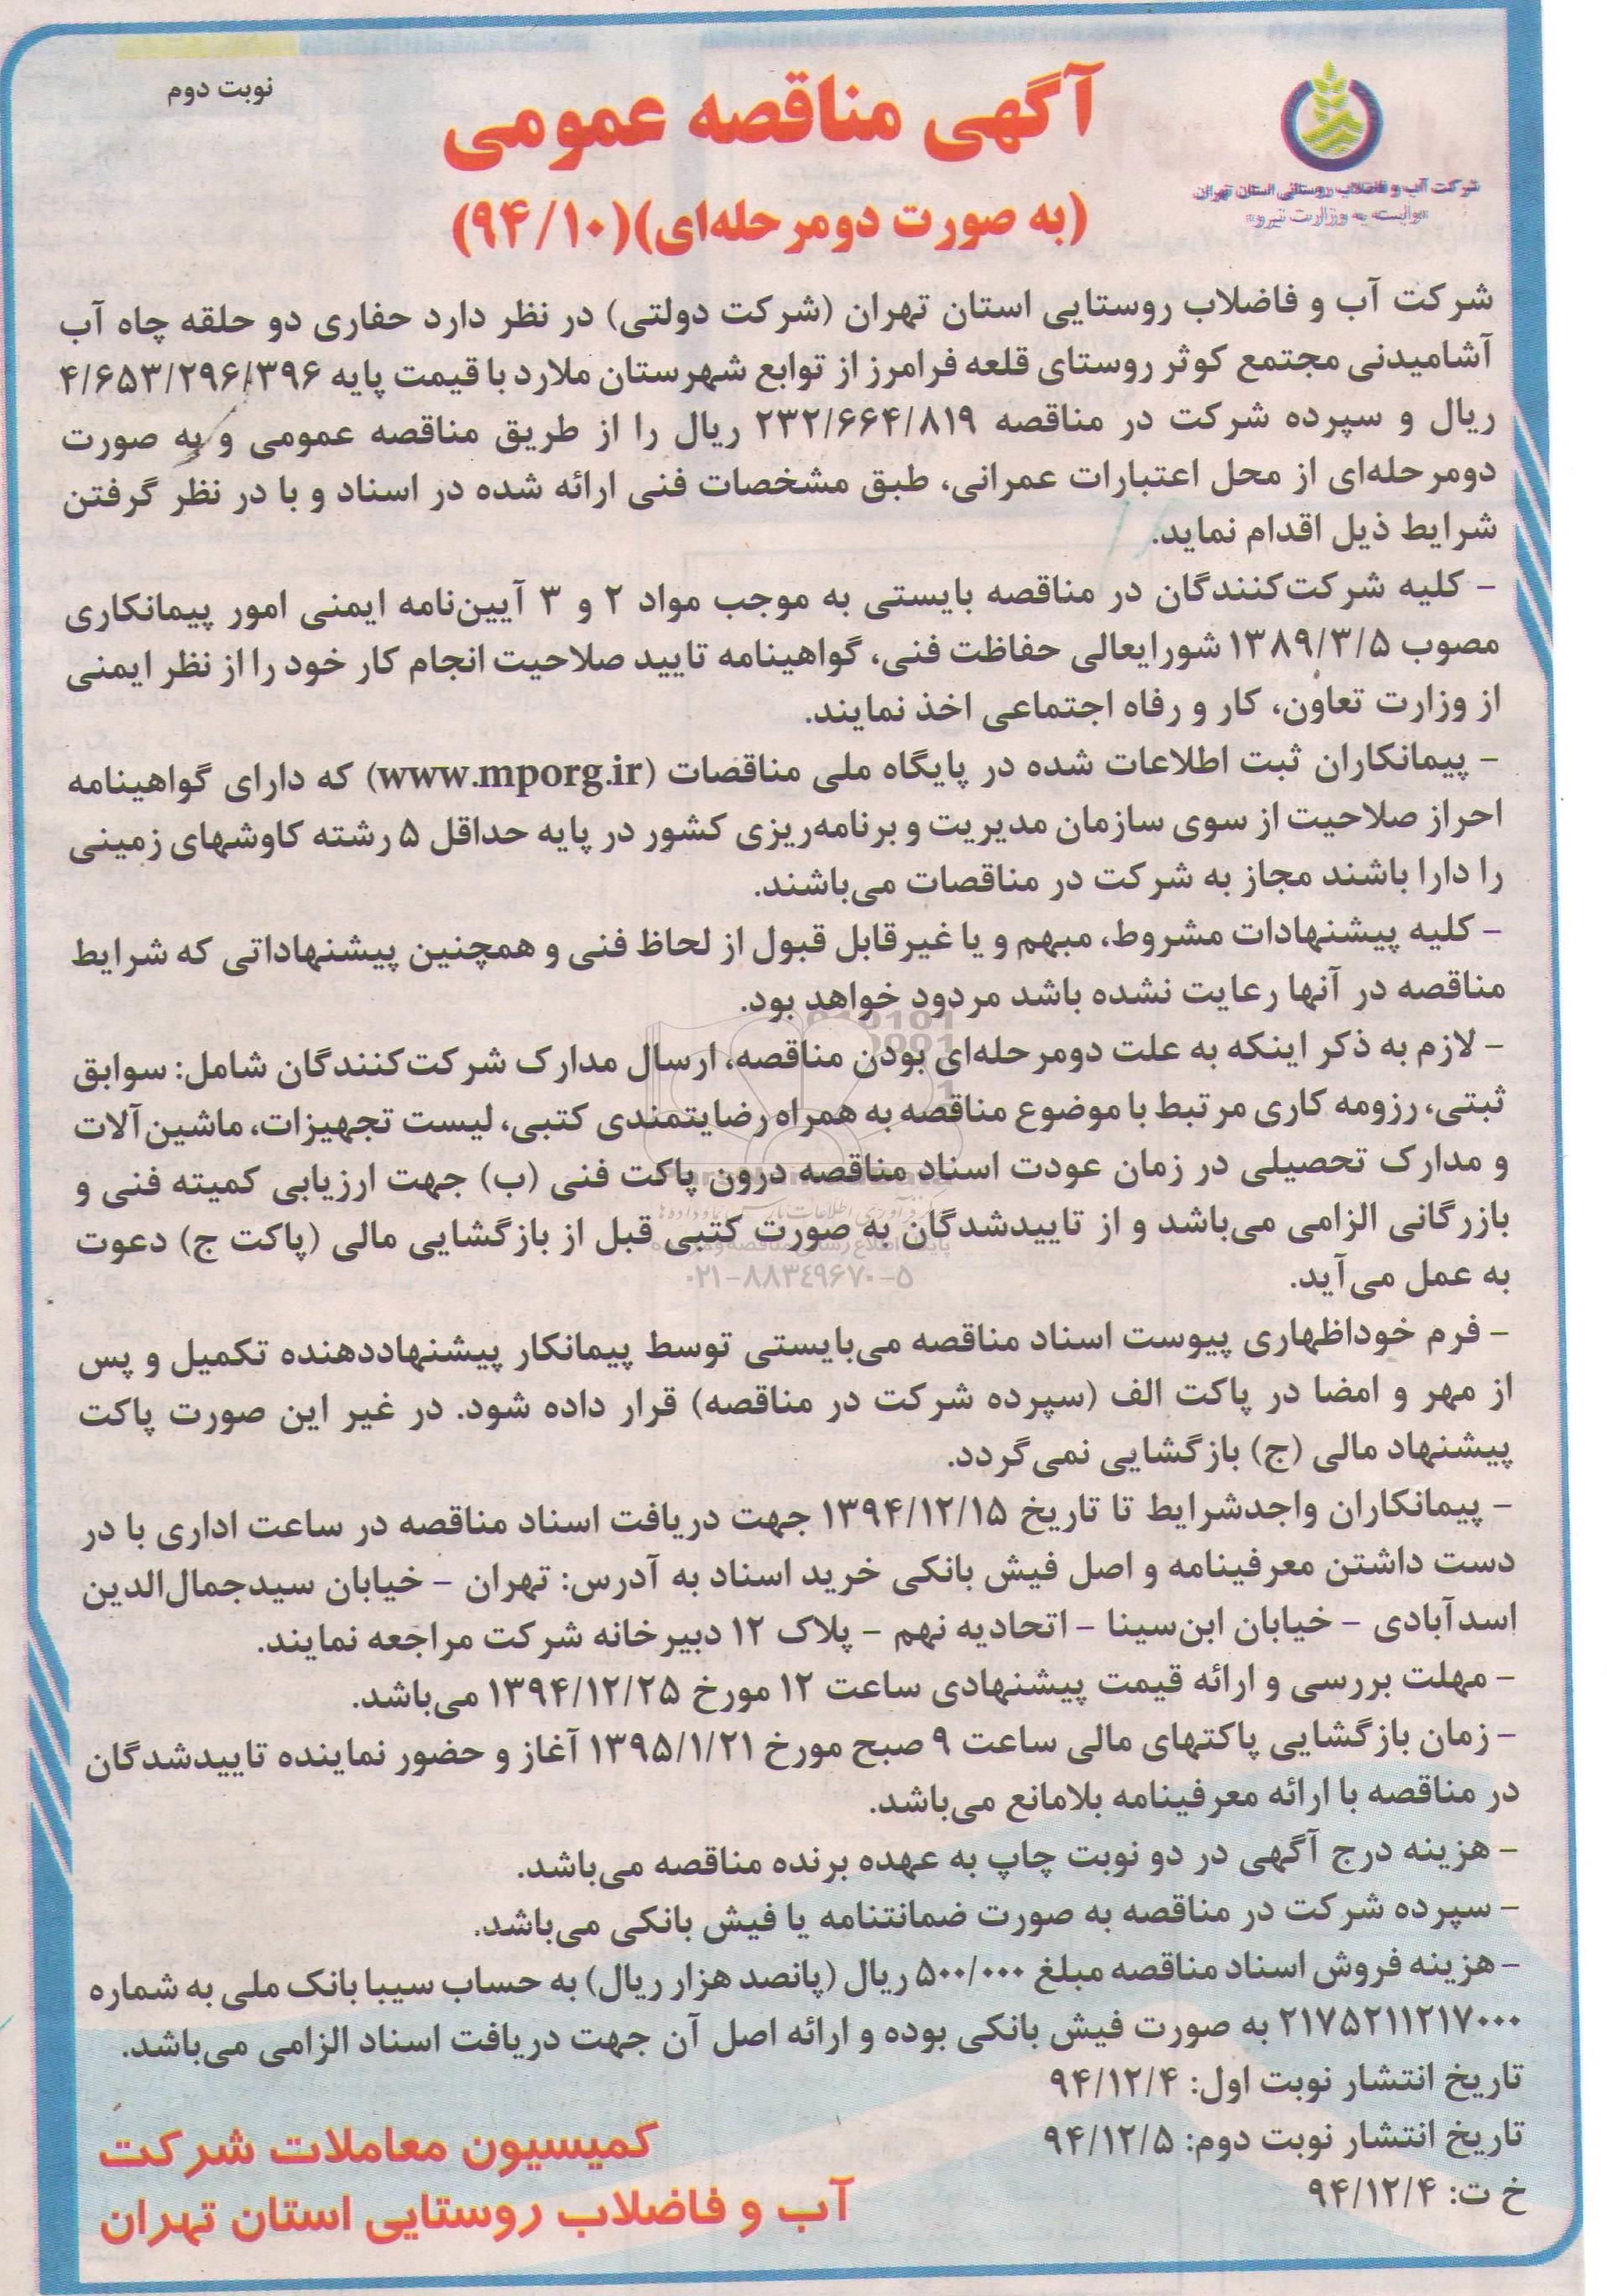 نوبت دوم
آگهی مناقصه عمومی
(به صورت دومرحله‌ای)(۹۴/۱۰)
شرکت آب و فاضلاب روستایی استان تهران
«وابسته به وزارت نیرو»
شرکت آب و فاضلاب روستایی استان تهران (شرکت دولتی) در نظر دارد حفاری دو حلقه چاه آب
آشامیدنی مجتمع کوثر روستای قلعه فرامرز از توابع شهرستان ملارد با قیمت پایه ۴/۶۵۳/۲۹۶/۳۹۶
ریال و سپرده شرکت در مناقصه ۲۳۲/۶۶۴/۸۱۹ ریال را از طریق مناقصه عمومی و به صورت
دومرحله‌ای از محل اعتبارات عمرانی، طبق مشخصات فنی ارائه شده در اسناد و با در نظر گرفتن
شرایط ذیل اقدام نماید.
- کلیه شرکت‌کنندگان در مناقصه بایستی به موجب مواد ۲ و ۳ آیین‌نامه ایمنی امور پیمانکاری
مصوب ۱۳۸۹/۳/۵ شورایعالی حفاظت فنی، گواهینامه تایید صلاحیت انجام کار خود را از نظر ایمنی
از وزارت تعاون، کار و رفاه اجتماعی اخذ نمایند.
- پیمانکاران ثبت اطلاعات شده در پایگاه ملی مناقصات (www.mporg.ir) که دارای گواهینامه
احراز صلاحیت از سوی سازمان مدیریت و برنامه‌ریزی کشور در پایه حداقل ۵ رشته کاوشهای زمینی
را دارا باشند مجاز به شرکت در مناقصات می‌باشند.
- کلیه پیشنهادات مشروط، مبهم و یا غیرقابل قبول از لحاظ فنی و همچنین پیشنهاداتی که شرایط
مناقصه در آنها رعایت نشده باشد مردود خواهد بود.
- لازم به ذکر اینکه به علت دومرحله‌ای بودن مناقصه، ارسال مدارک شرکت‌کنندگان شامل: سوابق
ثبتی، رزومه کاری مرتبط با موضوع مناقصه به همراه رضایتمندی کتبی، لیست تجهیزات، ماشین‌آلات
و مدارک تحصیلی در زمان عودت اسناد مناقصه درون پاکت فنی (ب) جهت ارزیابی کمیته فنی و
بازرگانی الزامی می‌باشد و از تاییدشدگان به صورت کتبی قبل از بازگشایی مالی (پاکت ج) دعوت
به عمل می‌آید.
۰۲۱-۸۸۳۴۹۶۷۰-۵
- فرم خوداظهاری پیوست اسناد مناقصه می‌بایستی توسط پیمانکار پیشنهاددهنده تکمیل و پس
از مهر و امضا در پاکت الف (سپرده شرکت در مناقصه) قرار داده شود. در غیر این صورت پاکت
پیشنهاد مالی (ج) بازگشایی نمی‌گردد.
- پیمانکاران واجدشرایط تا تاریخ ۱۳۹۴/۱۲/۱۵ جهت دریافت اسناد مناقصه در ساعت اداری با در
دست داشتن معرفینامه و اصل فیش بانکی خرید اسناد به آدرس: تهران - خیابان سیدجمال‌الدین
اسدآبادی - خیابان ابن‌سینا - اتحادیه نهم - پلاک ۱۲ دبیرخانه شرکت مراجعه نمایند.
- مهلت بررسی و ارائه قیمت پیشنهادی ساعت ۱۲ مورخ ۱۳۹۴/۱۲/۲۵ می‌باشد.
- زمان بازگشایی پاکتهای مالی ساعت ۹ صبح مورخ ۱۳۹۵/۱/۲۱ آغاز و حضور نماینده تاییدشدگان
در مناقصه با ارائه معرفینامه بلامانع می‌باشد.
- هزینه درج آگهی در دو نوبت چاپ به عهده برنده مناقصه می‌باشد.
- سپرده شرکت در مناقصه به صورت ضمانتنامه یا فیش بانکی می‌باشد.
- هزینه فروش اسناد مناقصه مبلغ ۵۰۰/۰۰۰ ریال (پانصد هزار ریال) به حساب سیبا بانک ملی به شماره
۲۱۷۵۲۱۱۲۱۷۰۰۰ به صورت فیش بانکی بوده و ارائه اصل آن جهت دریافت اسناد الزامی می‌باشد.
تاریخ انتشار نوبت اول: ۹۴/۱۲/۴
تاریخ انتشار نوبت دوم: ۹۴/۱۲/۵
خ ت: ۹۴/۱۲/۴
کمیسیون معاملات شرکت
آب و فاضلاب روستایی استان تهران